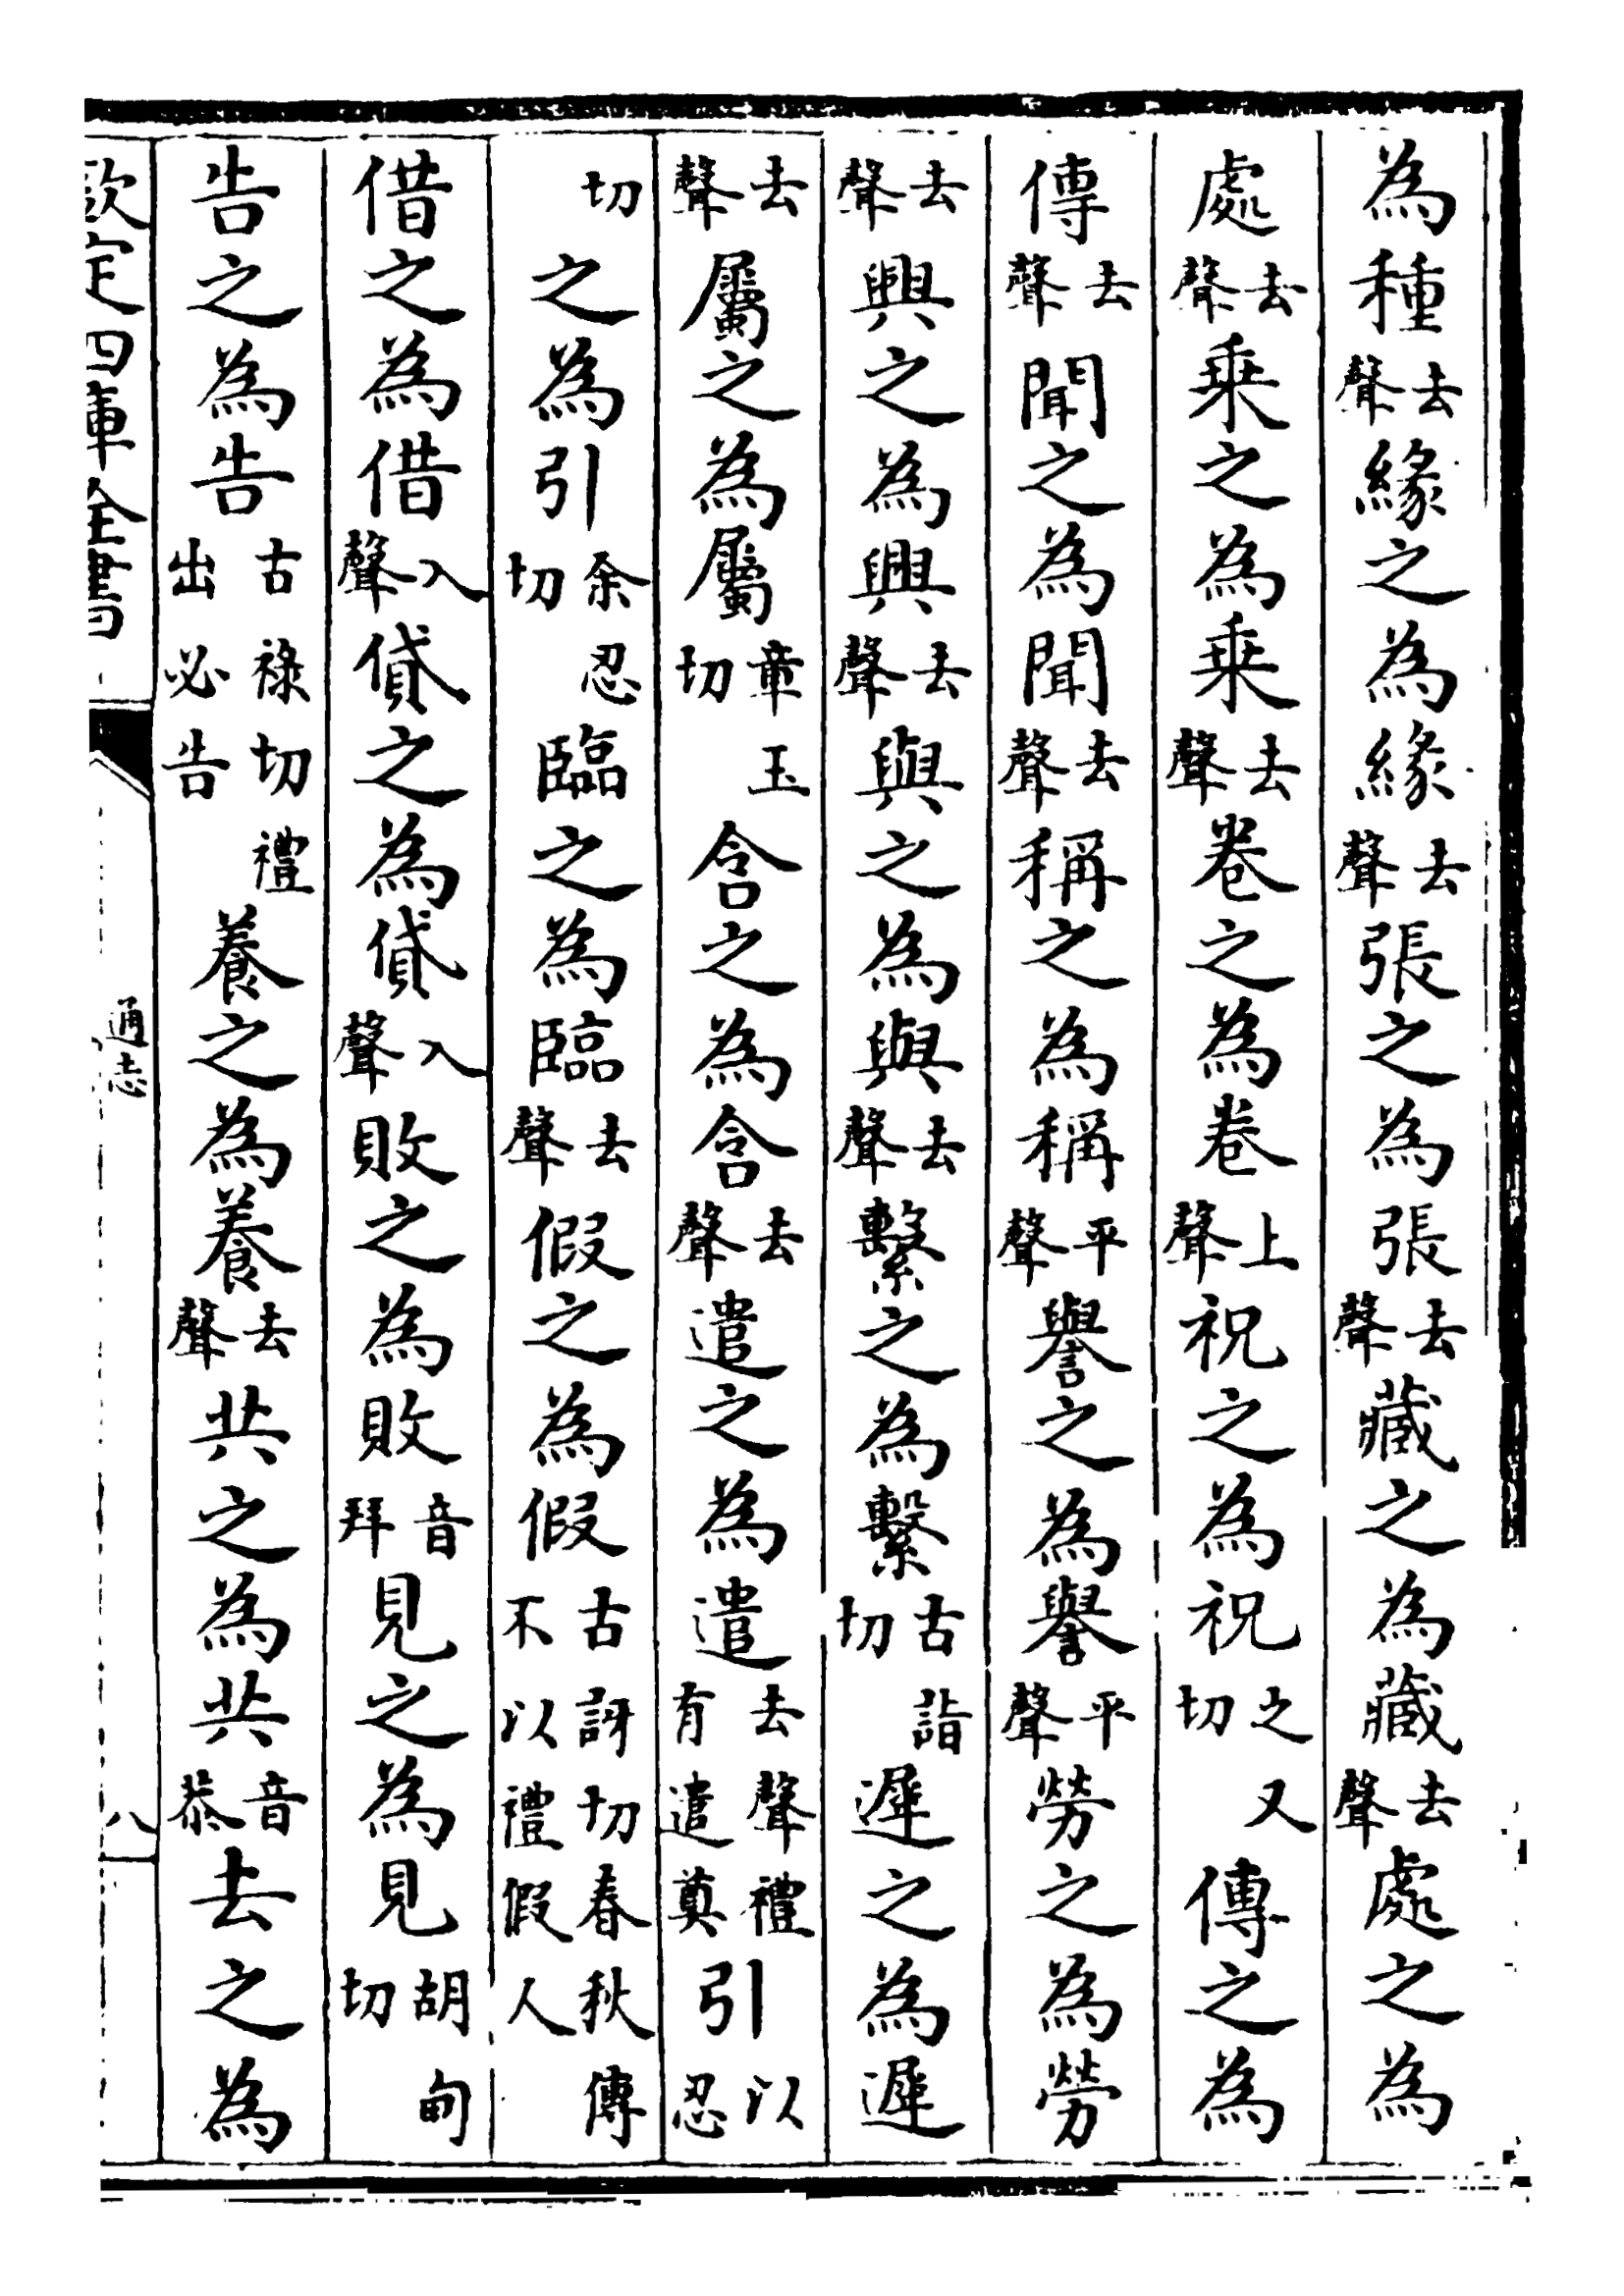 為種去聲緣之為緣去聲張之為張去聲藏之為藏去聲處之為
處去聲乗之為乗去聲卷之為卷上聲祝之為祝之又切傳之為
傳去聲聞之為聞去聲稱之為稱平聲譽之為譽平聲勞之為勞
去聲興之為興去聲與之為與去聲繫之為繫古詣切遲之為遲
去聲屬之為屬章玉切含之為含去聲遣之為遣去聲禮有遣奠引以忍
切之為引余忍切臨之為臨去聲假之為假古訝切春秋傳不以禮假人
借之為借入聲貸之為貸入聲敗之為敗音拜見之為見胡甸切
告之為告古祿切禮出必告養之為養去聲共之為共音恭去之為
欽定四庫全書
通志
八